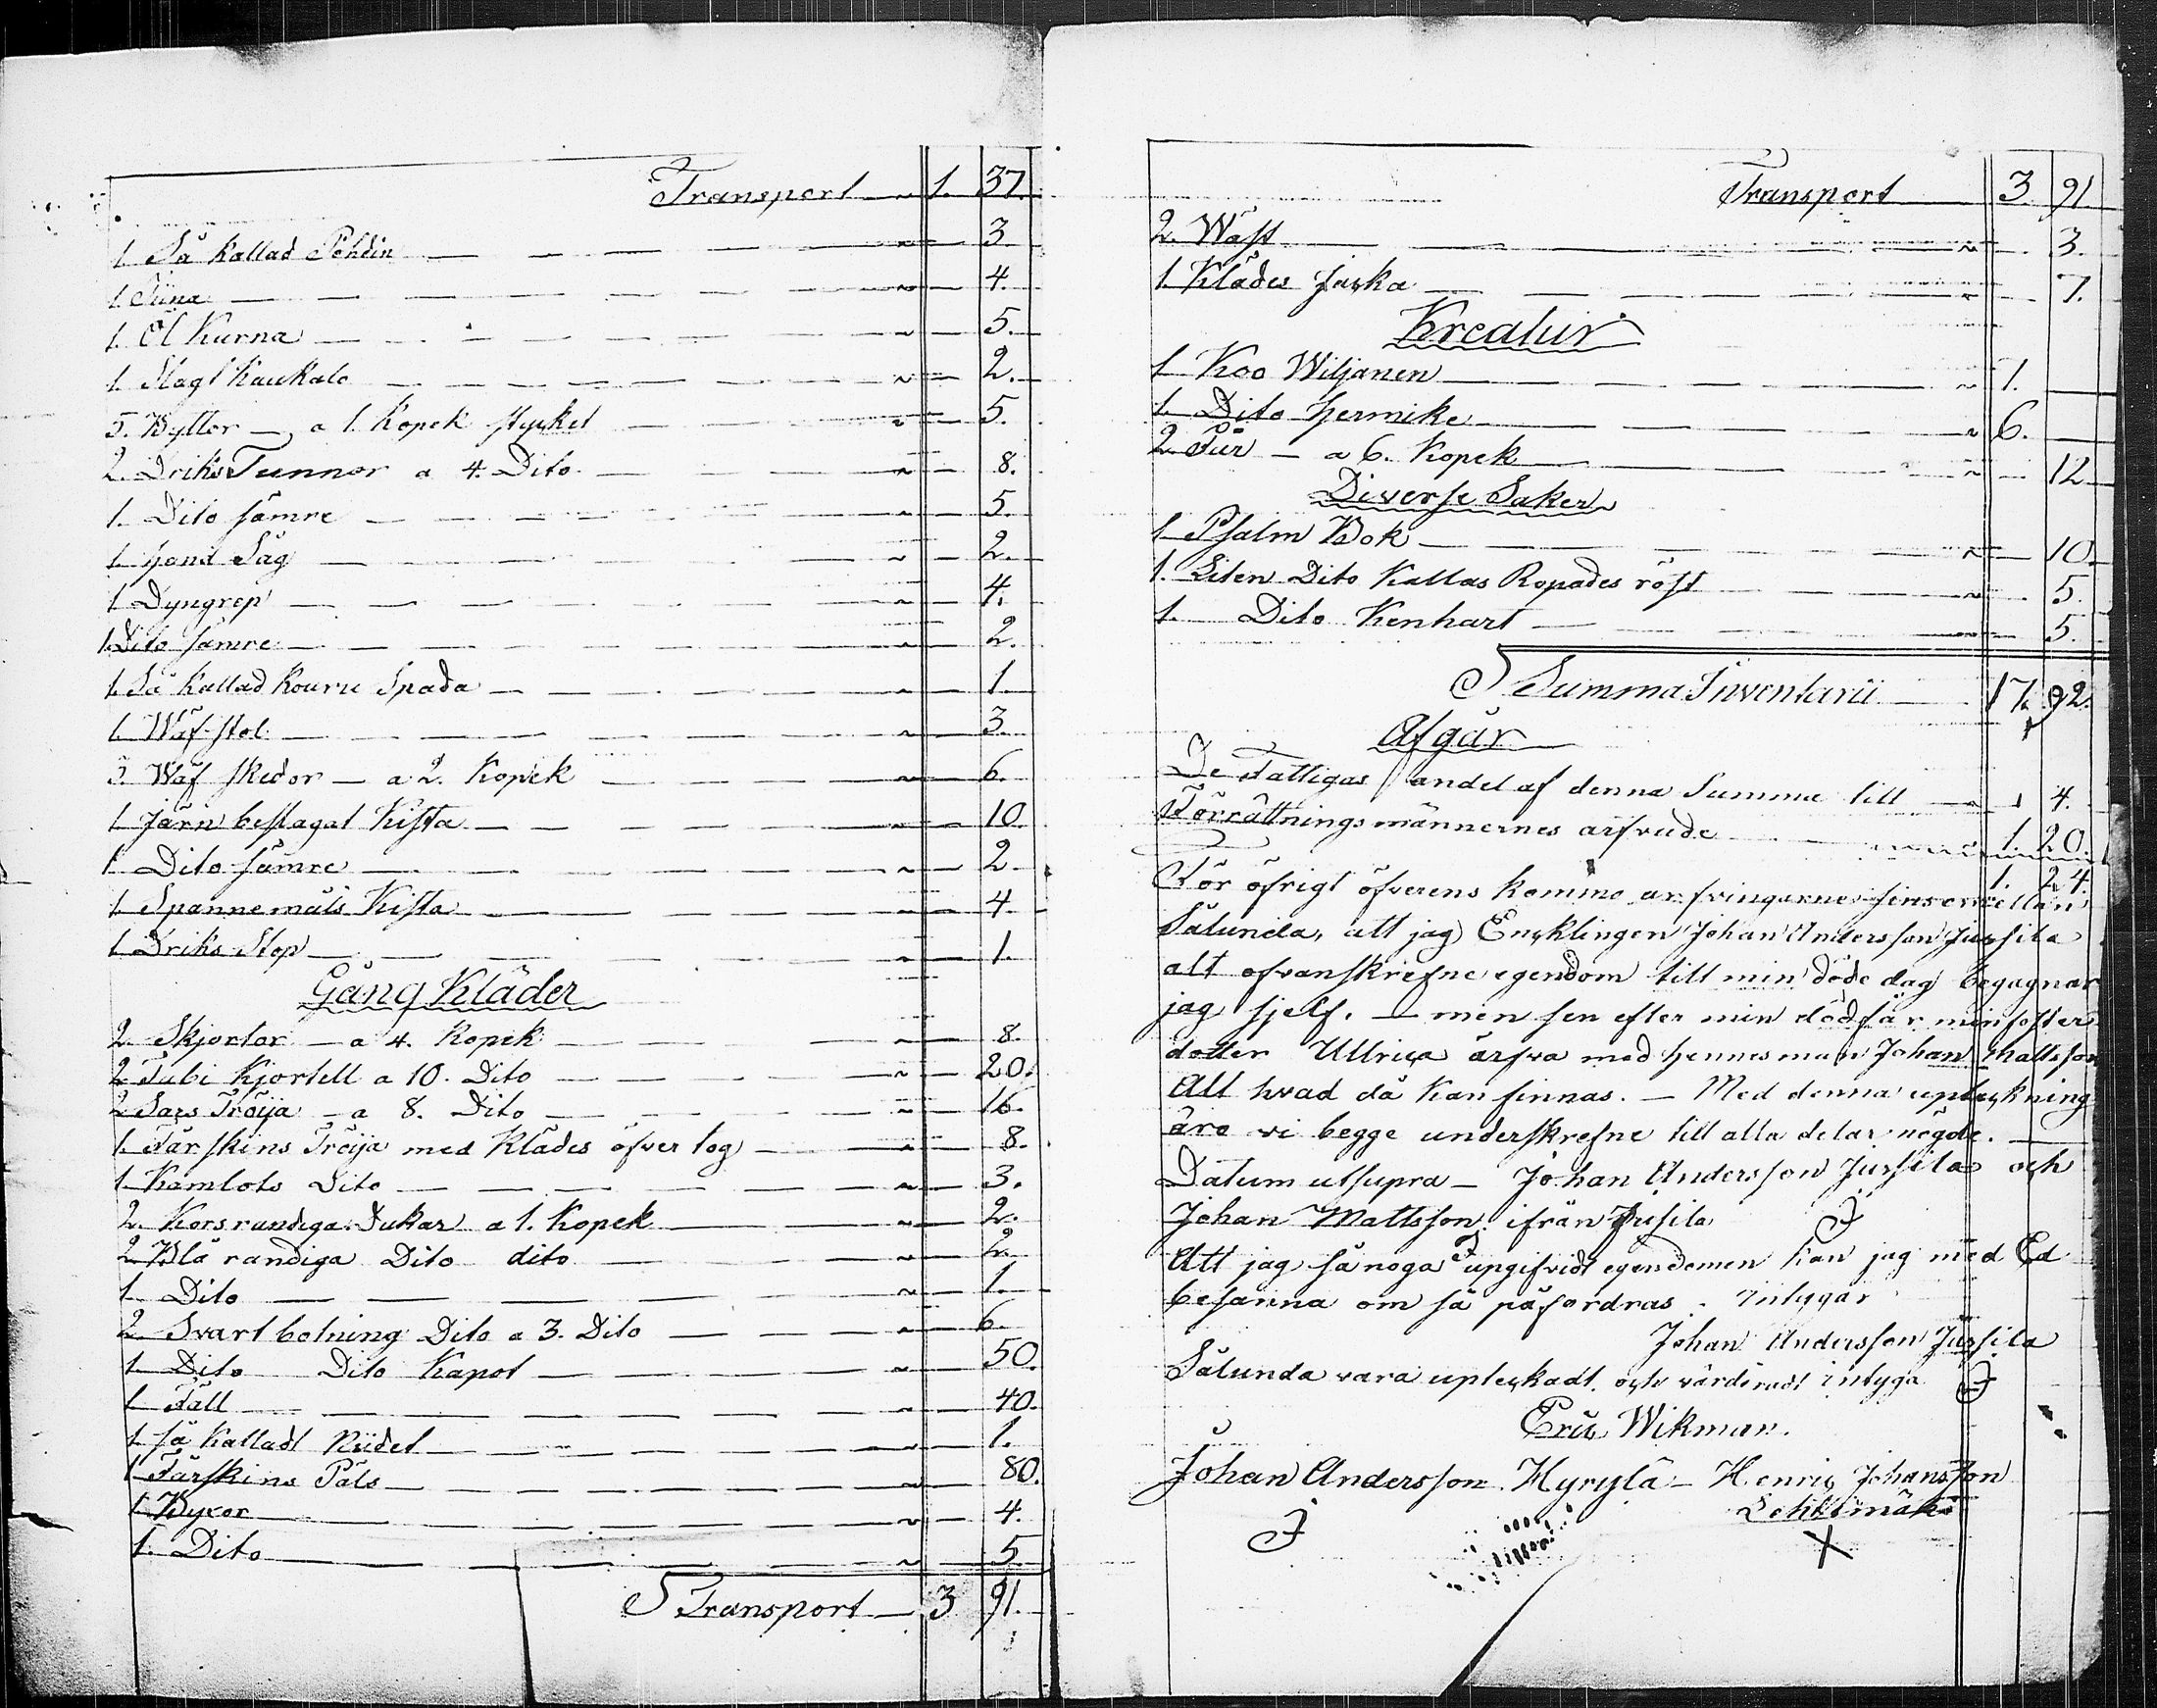 Transport ~ 1. 37.
1. Så kallad Pöndin ~ 3
1. Tiina ~ 4.
1. Öl Kurna ~ 5.
1. Slagt Kaukalo ~ 2.
5. Byttor a 1. Kopek stycket ~ 5.
2. Driks Tunnor a 4. Dito ~ 8.
1. Dito sämre ~ 5.
1. Hand Såg ~ 2.
1 Dyngrep ~ 4.
1. Dito sämre ~ 2.
1. Så kallad Kouru Spada ~ 1.
1. Wäf stol ~ 3.
3. Wäf skedor a 2. Kopek ~ 6.
1. Järn beslagat Kista ~ 10
1. Dito sämre ~ 2
1. Spannemåls Kista ~ 4
1. Driks Stop ~ 1.
Gång Kläder
2. Skjortor a 4. Kopek ~ 8.
2 Tubi Kjortell a 10. Dito ~ 20.
2 Sars Tröija a 8. Dito ~ 16.
1. Fårskins Tröija med Klädes öfver tog ~ 8.
1 Kamlots Dito ~ 3.
2. Korsrandiga Dukar a 1. Kopek ~ 2.
2 Blå randiga Dito dito ~ 2.
1. Dito ~ 1.
2 Svart botning Dito a 3. Dito ~ 6.
1. Dito Dito Kapot ~ 50.
1 Fäll ~ 40.
1 så kalladt Riidel ~ 1.
1 Fårskins Päls ~ 80.
1. Byxor ~ 4.
1. Dito ~ 5
Transport 3 91.
Transport 3. 91.
2. Wäst ~ 3.
1. Klädes jacka ~ 7.
Kreatur
1 Koo Wiljanen ~ 7.
1. Dito Hermike ~ 6.
2 Får a 6. Kopek ~ 12
Diverse Saker
1 Psalm Bok ~ 10.
1. Liten Dito Kallas Ropades röst ~ 5.
1. Dito Kenhart ~ 5.
Summa Inventarii 17. 92.
Afgår
De Fattigas andel af denna Summa till 4.
Förrättningsmännernes arfvude 1. 20.
1. 24.
För öfrigt öfverens kommo arfvingarne sins emellan
Sålunda, att jag Encklingen Johan Andersson Jussila
alt ofvanskrefne egendom till min döde dag begagnar
jag sjelf. — men sen efter min död får min foster
dotter Ullrica ärfva med hennes man Johan Mattsson
Alt hvad då kan finnas. — Med denna upteckning
äro vi begge underskrefne till alla delar nögde. —
Datum utsupra — Johan Andersson Jussila och
Johan Mattsson ifrån Jusila
Att jag så noga upgifvidt egendomen kan jag med Ed
besanna om så påfordras. intygar
Johan Andersson Jussila
Sålunda vara upteckadt och värderadt intyga
Eric Wikman.
Johan Andersson Hyrylä — Henric Johansson
Lehtimäki
X